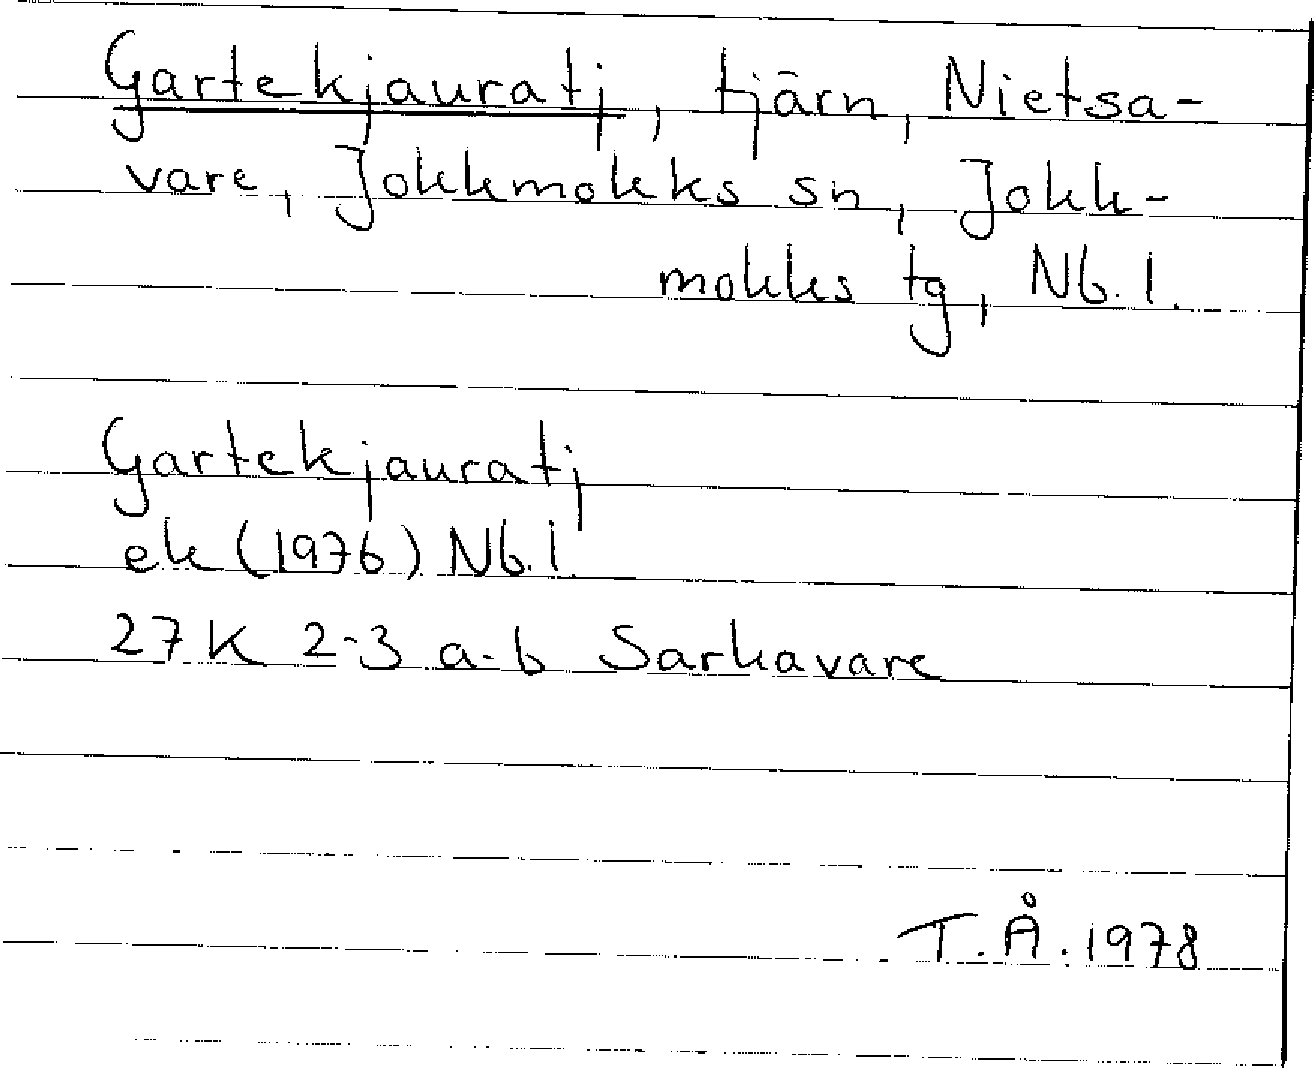 Gartekjauratj, tjärn, Nietsa-
vare, Jokkmokks sn, Jokk-
mokks tg, Nb. l.
Gartekjauratj
ek (1976) Nb. l.
27 K 2-3 a-b Sarkavare
T. Å. 1978